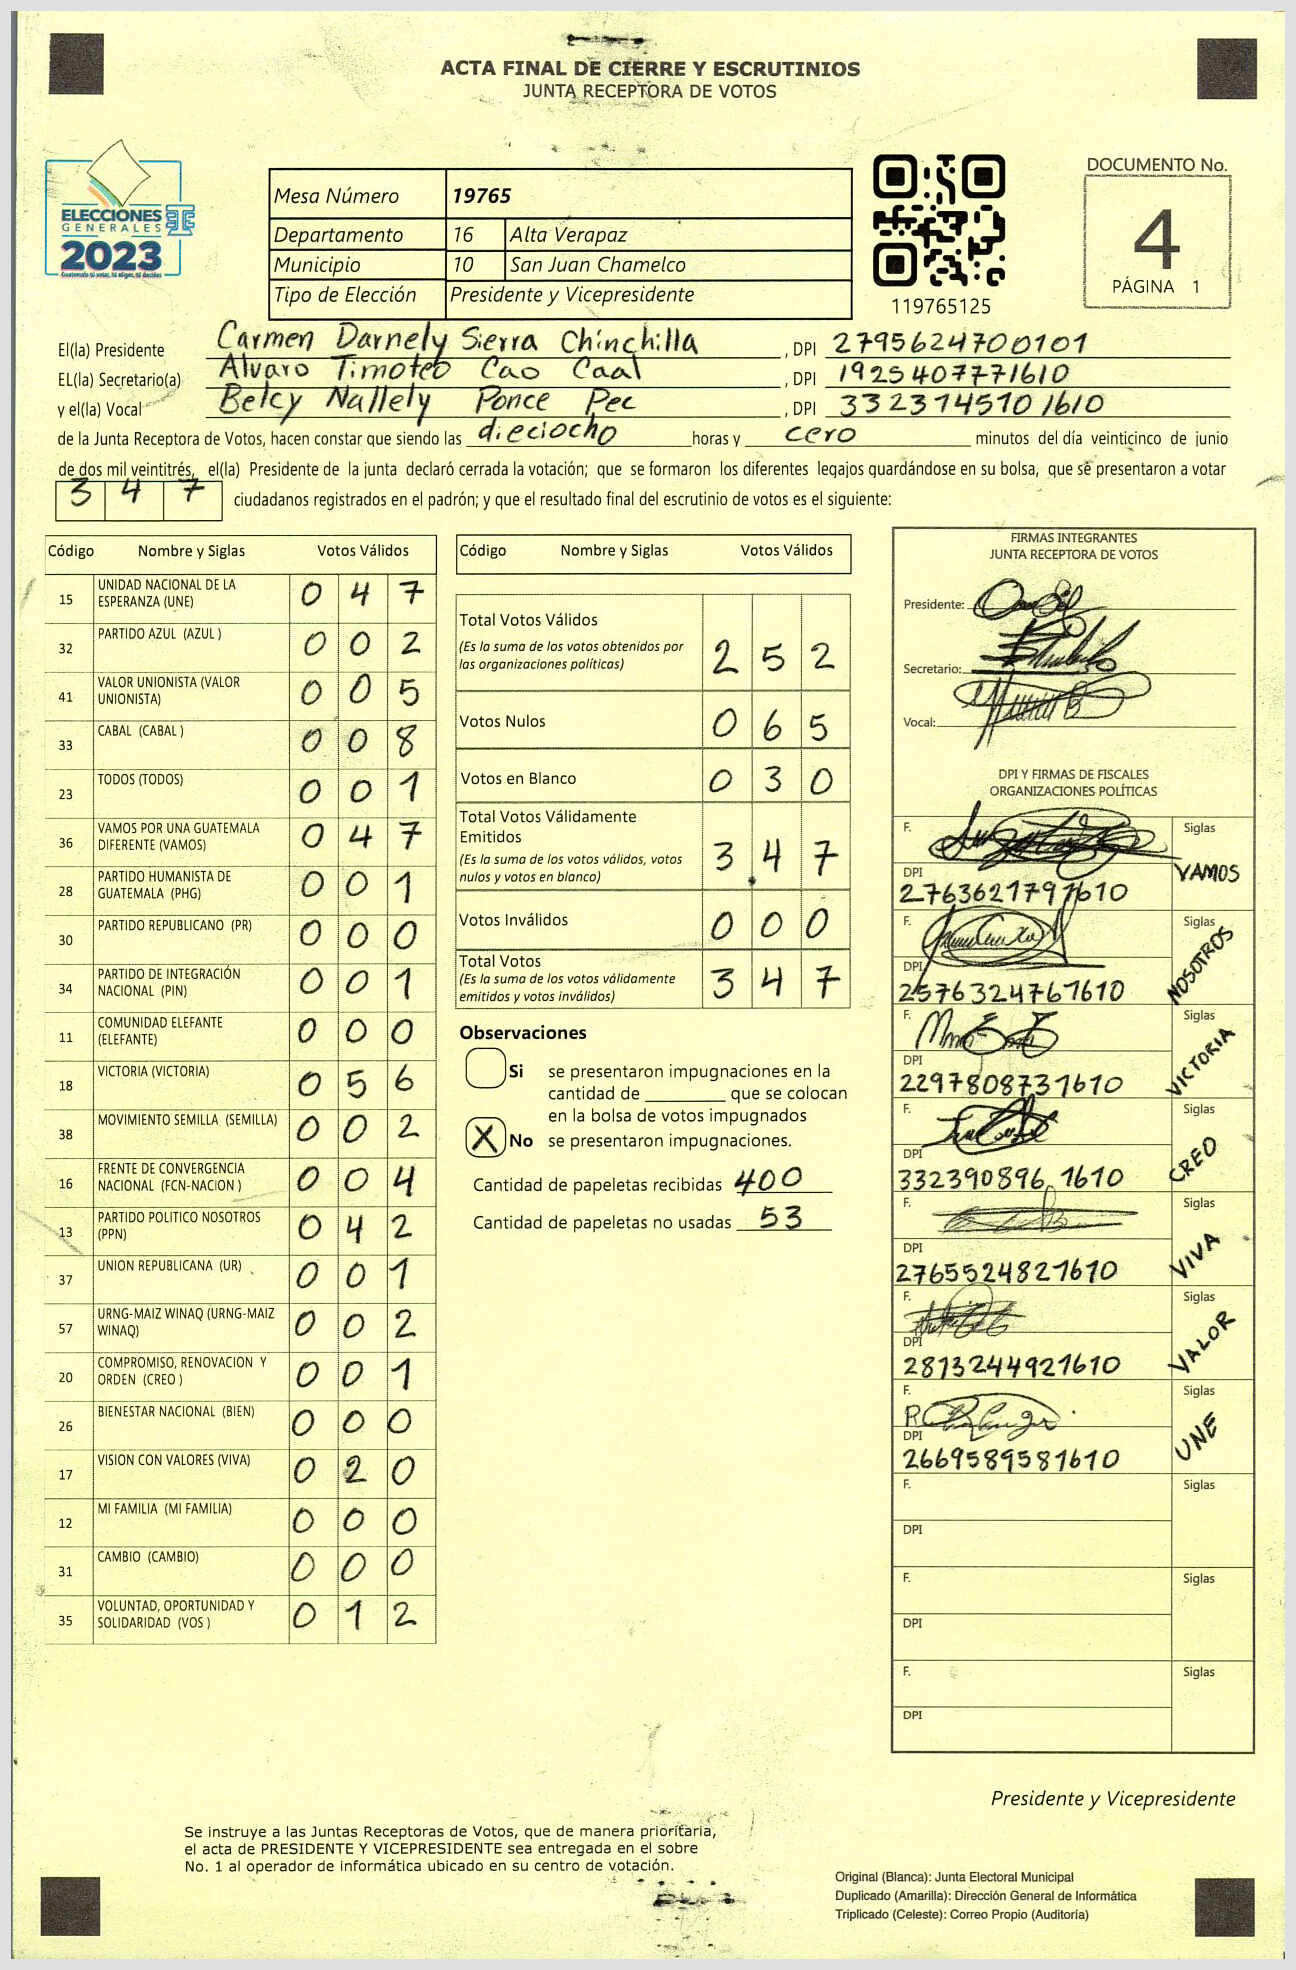 ACTA FINAL DE CIERRE Y ESCRUTINIOS
JUNTA RECEPTORA DE VOTOS
ELECCIONES
GENERALES
2023
Mesa Número 19765
Departamento 16 Alta Verapaz
Municipio 10 San Juan Chamelco
Tipo de Elección Presidente y Vicepresidente
119765125
DOCUMENTO No.
4
PÁGINA 1
El(la) Presidente Carmen Darnely Sierra Chinchilla, DPI 2795624700101
EL(la) Secretario(a) Alvaro Timoteo Cao Caal, DPI 1925407771610
y el(la) Vocal Belcy Nallely Ponce Pec, DPI 3323745101610
de la Junta Receptora de Votos, hacen constar que siendo las dieciocho horas y cero minutos del día veinticinco de junio
de dos mil veintitrés, el(la) Presidente de la junta declaró cerrada la votación; que se formaron los diferentes legajos guardándose en su bolsa, que se presentaron a votar
3 4 7 ciudadanos registrados en el padrón; y que el resultado final del escrutinio de votos es el siguiente:
Código Nombre y Siglas Votos Válidos
15 UNIDAD NACIONAL DE LA ESPERANZA (UNE) 0 4 7
32 PARTIDO AZUL (AZUL ) 0 0 2
41 VALOR UNIONISTA (VALOR UNIONISTA) 0 0 5
33 CABAL (CABAL ) 0 0 8
23 TODOS (TODOS) 0 0 1
36 VAMOS POR UNA GUATEMALA DIFERENTE (VAMOS) 0 4 7
28 PARTIDO HUMANISTA DE GUATEMALA (PHG) 0 0 1
30 PARTIDO REPUBLICANO (PR) 0 0 0
34 PARTIDO DE INTEGRACIÓN NACIONAL (PIN) 0 0 1
11 COMUNIDAD ELEFANTE (ELEFANTE) 0 0 0
18 VICTORIA (VICTORIA) 0 5 6
38 MOVIMIENTO SEMILLA (SEMILLA) 0 0 2
16 FRENTE DE CONVERGENCIA NACIONAL (FCN-NACION ) 0 0 4
13 PARTIDO POLITICO NOSOTROS (PPN) 0 4 2
37 UNION REPUBLICANA (UR) 0 0 1
57 URNG-MAIZ WINAQ (URNG-MAIZ WINAQ) 0 0 2
20 COMPROMISO, RENOVACION Y ORDEN (CREO ) 0 0 1
26 BIENESTAR NACIONAL (BIEN) 0 0 0
17 VISION CON VALORES (VIVA) 0 2 0
12 MI FAMILIA (MI FAMILIA) 0 0 0
31 CAMBIO (CAMBIO) 0 0 0
35 VOLUNTAD, OPORTUNIDAD Y SOLIDARIDAD (VOS ) 0 1 2
Código Nombre y Siglas Votos Válidos
Total Votos Válidos
(Es la suma de los votos obtenidos por
las organizaciones políticas) 2 5 2
Votos Nulos 0 6 5
Votos en Blanco 0 3 0
Total Votos Válidamente
Emitidos
(Es la suma de los votos válidos, votos
nulos y votos en blanco) 3 4 7
Votos Inválidos 0 0 0
Total Votos
(Es la suma de los votos válidamente
emitidos y votos inválidos) 3 4 7
Observaciones
Si se presentaron impugnaciones en la
cantidad de ________ que se colocan
en la bolsa de votos impugnados
X No se presentaron impugnaciones.
Cantidad de papeletas recibidas 400
Cantidad de papeletas no usadas 53
FIRMAS INTEGRANTES
JUNTA RECEPTORA DE VOTOS
Presidente:
Secretario:
Vocal:
DPI Y FIRMAS DE FISCALES
ORGANIZACIONES POLÍTICAS
F. Siglas
DPI VAMOS
2763621797610
F. Siglas
DPI NOSOTROS
2576324761610
F. Siglas
DPI VICTORIA
2297808731610
F. Siglas
DPI CREO
332390896 1610
F. Siglas
DPI VIVA
2765524821610
F. Siglas
DPI VALOR
2813244921610
F. Siglas
DPI UNE
2669589581610
F. Siglas
DPI
F. Siglas
DPI
F. Siglas
DPI
Presidente y Vicepresidente
Se instruye a las Juntas Receptoras de Votos, que de manera prioritaria,
el acta de PRESIDENTE Y VICEPRESIDENTE sea entregada en el sobre
No. 1 al operador de informática ubicado en su centro de votación.
Original (Blanca): Junta Electoral Municipal
Duplicado (Amarilla): Dirección General de Informática
Triplicado (Celeste): Correo Propio (Auditoría)